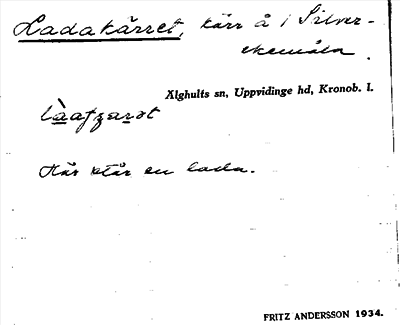 Ladakärret, kärr å i Silver-
ekemåla.
Älghults sn, Uppvidinge hd, Kronob. l.
Här står en lada.
FRITZ ANDERSSON 1934.